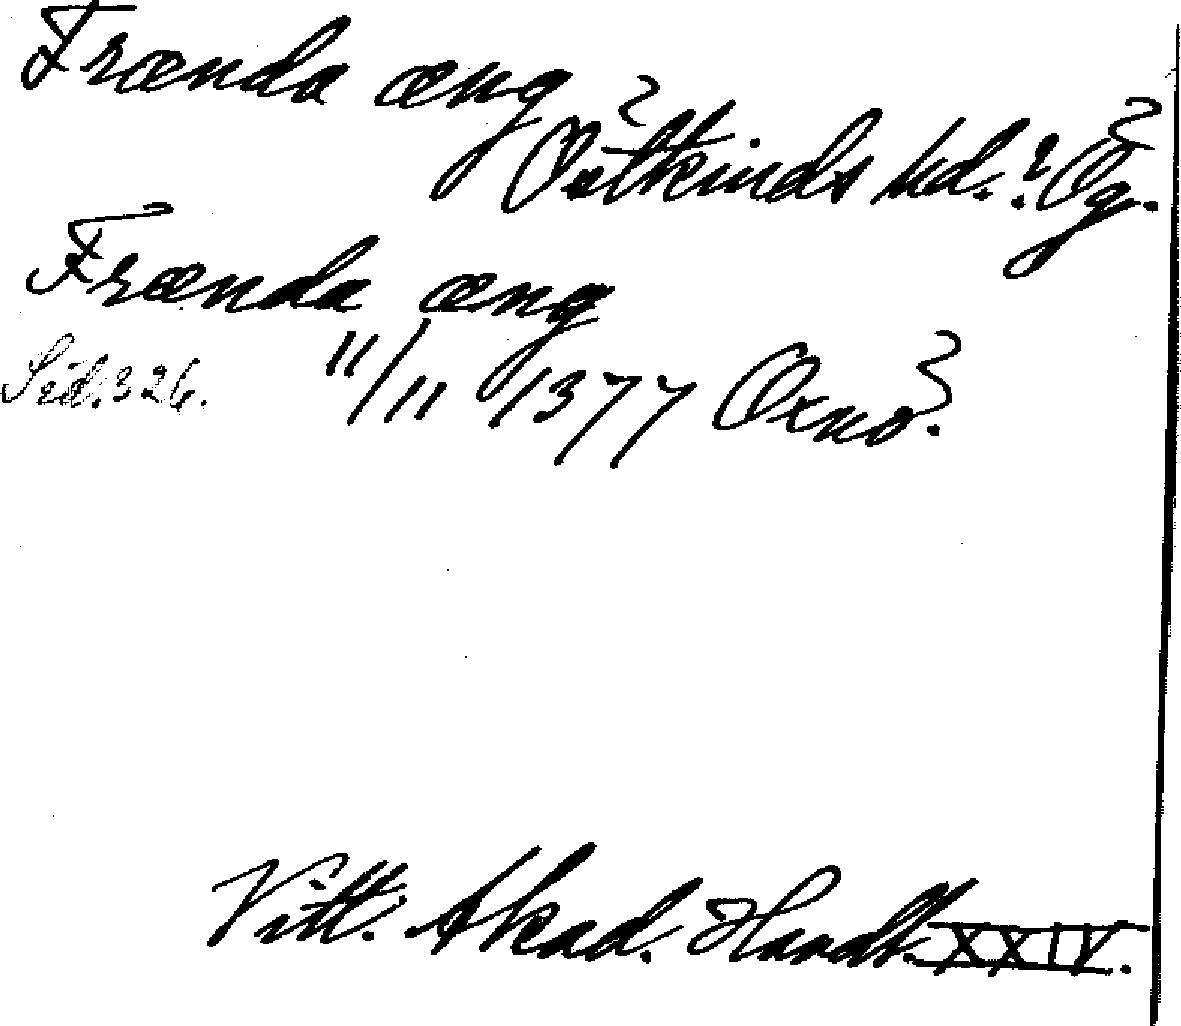 Frænda æng
Östkinds hd.? Ög.
Frænda æng
Sid. 326. 11/11 1377 Oxnö.
Vitt. Akad. Handl. XXIV.